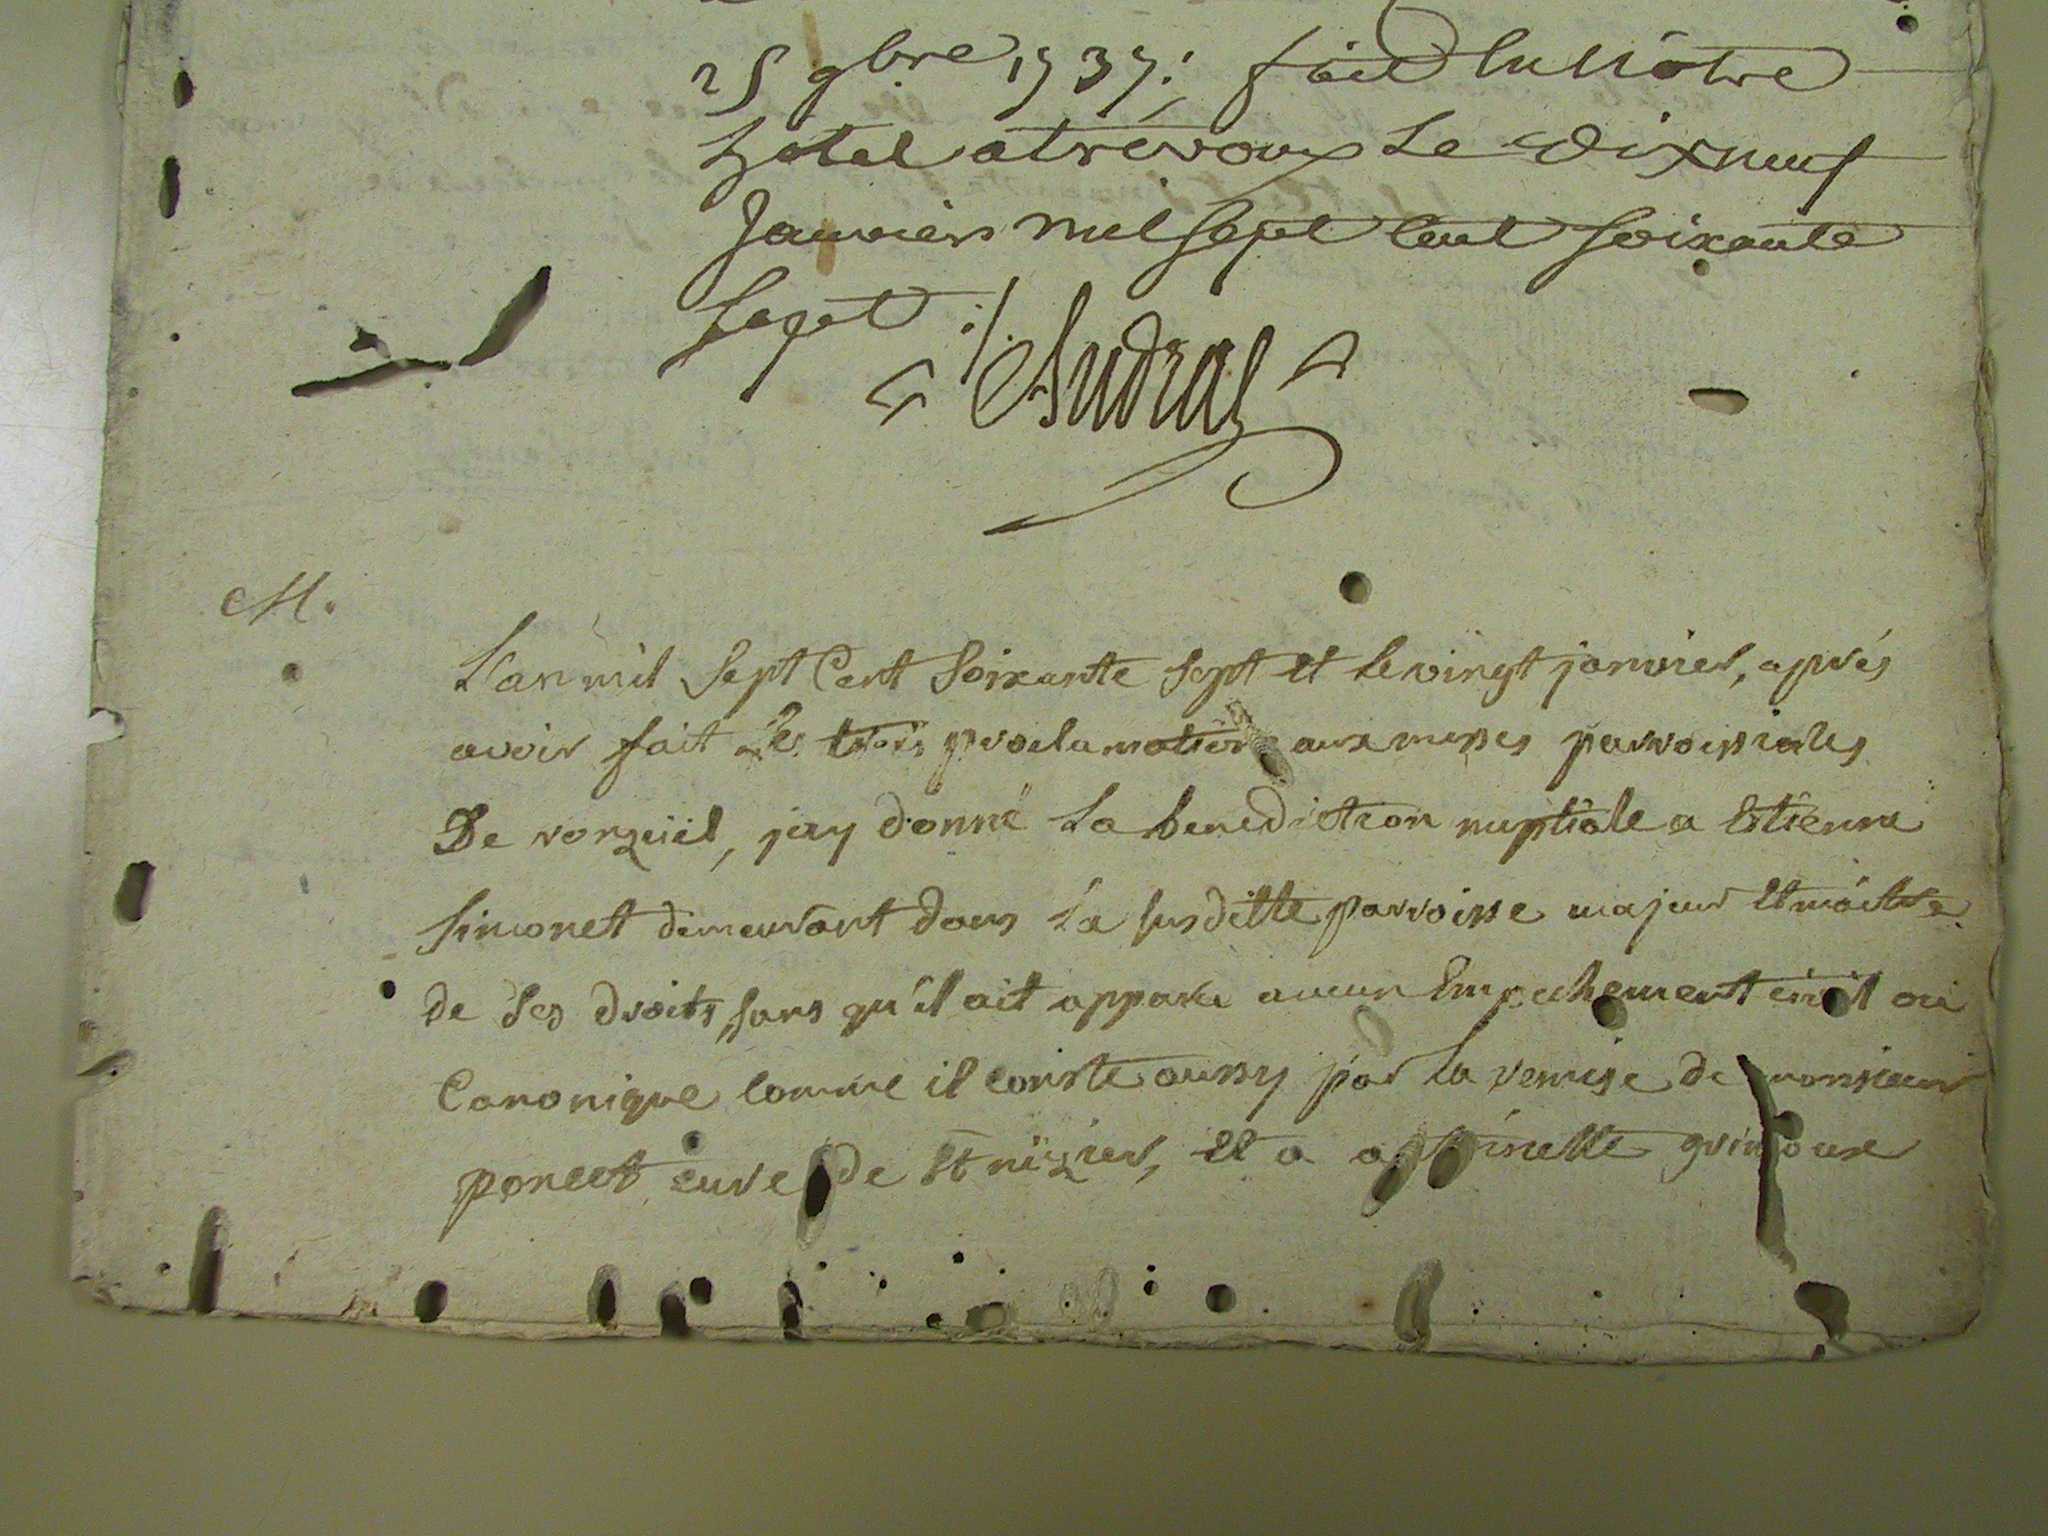 25 9bre 1737; fait en Nôtre
hotel a trévoux Le Dixneuf
Janvier mil sept Cent soixante
sept ./.
Audras
M.
L'an mil sept Cent soixante sept et le vingt janvier, aprés
avoir fait les trois proclamations aux messes parroissiales
De vonzüil, jay donné la benediction nuptiale a Estienne
Simonet demeurant dans la susditte parroisse majeur et maitre
de ses droits, sans qu'il ait apparu aucun Empechement civil ou
Canonique comme il conste aussy par la remise de monsieur
poncet curé de St nizier, et a